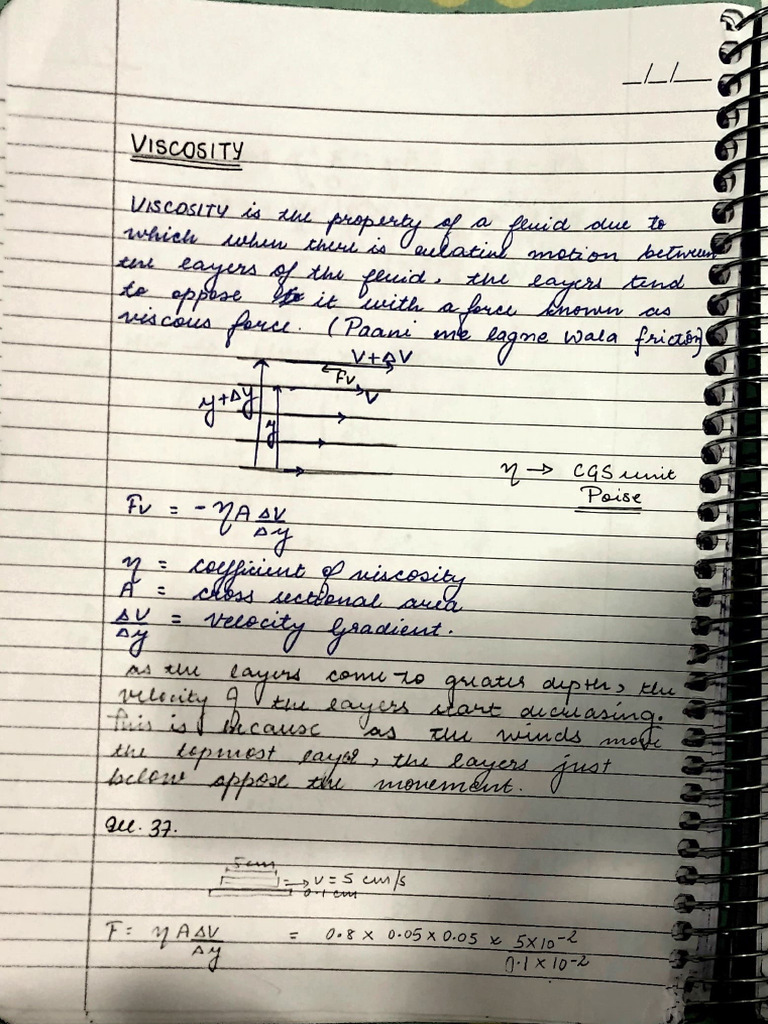 _/_/__
VISCOSITY
VISCOSITY is the property of a fluid due to
which when there is relative motion between
the layers of the fluid, the layers tend
to oppose it with a force known as
viscous force. (Paani me lagne wala friction)
V+ΔV
Fv
V
y+Δy
y
η → CGS unit
Poise
Fv = -ηA ΔV/Δy
η = coefficient of viscosity
A = cross sectional area
ΔV/Δy = velocity Gradient.
as the layers come to greater depths, the
velocity of the layers start decreasing.
This is because as the winds move
the topmost layer, the layers just
below oppose the movement.
37.
5 cm
→ V = 5 cm/s
0.1 cm
F = ηA ΔV/Δy = 0.8 x 0.05 x 0.05 x 5x10⁻²/0.1x10⁻²